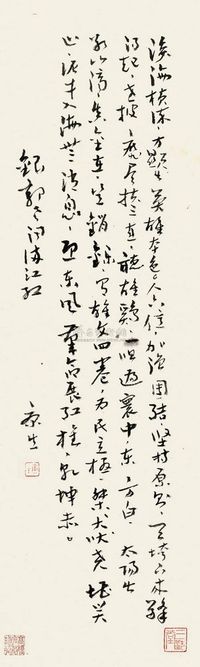 滄海橫流，方顯出英雄本色。人六億，加強團結，堅持原則。天垮下來擎
得起，世披靡矣扶之直，聽雄鷄一唱遍寰中，東方白。太陽出，
冰山滴，真金在，豈銷鑠，有雄文四卷，爲民立極，桀犬吠堯堪笑
止，泥牛入海無消息，迎東風革命展紅旗，乾坤赤。
錄郭老詞滿江紅